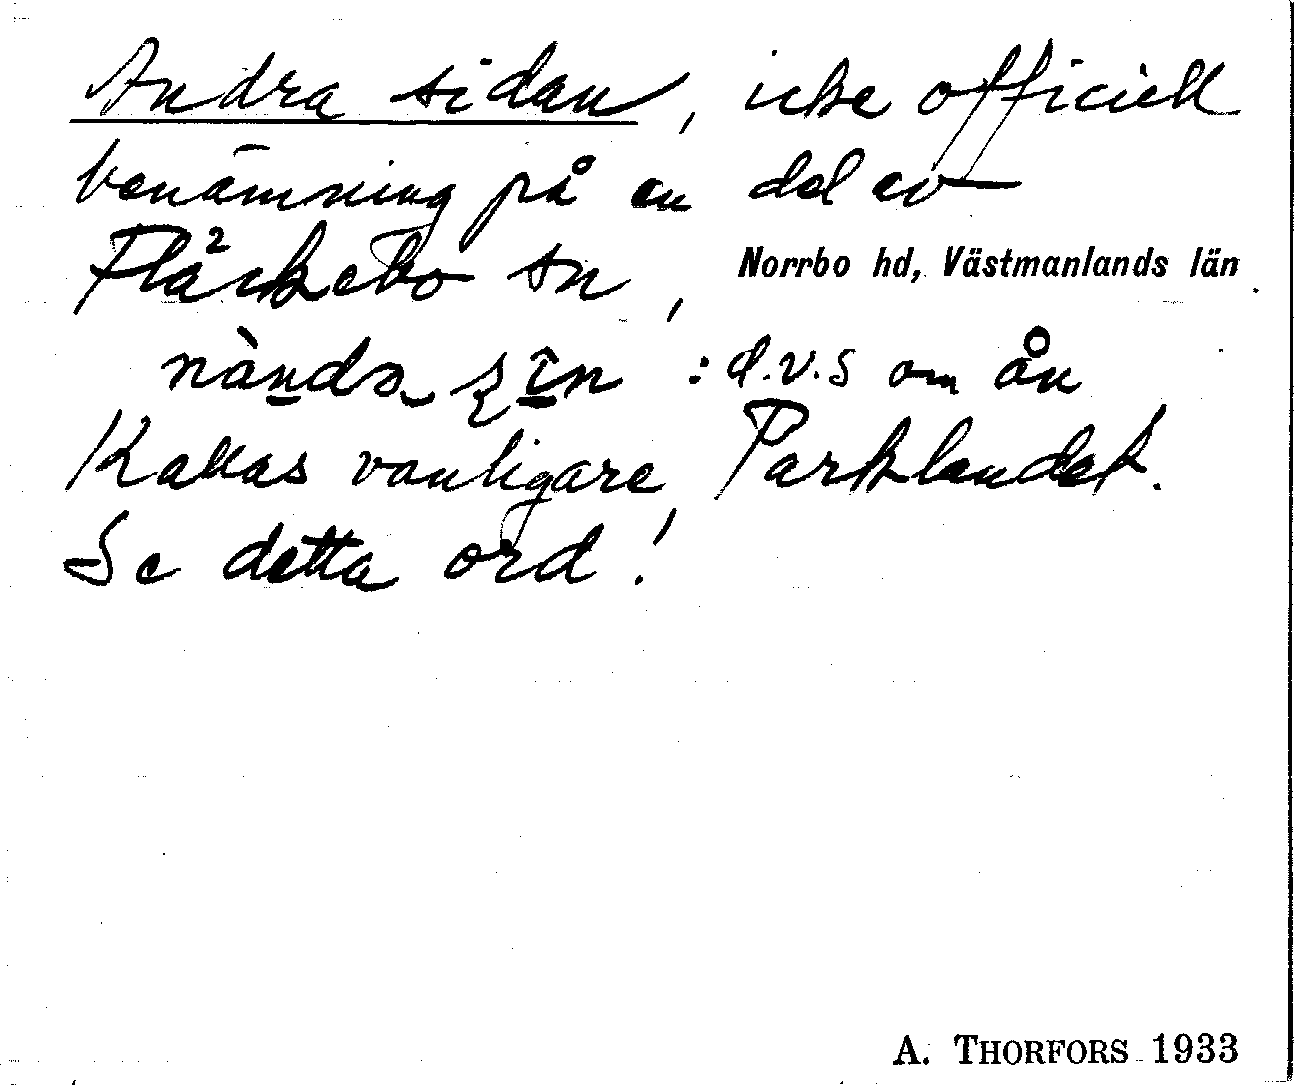 Andra sidan, icke officiell
benämning på en del av
Fläckebo sn, Norrbo hd, Västmanlands län.
: d.v.s om ån
Kallas vanligare Parklandet.
Se detta ord!
A. THORFORS 1933